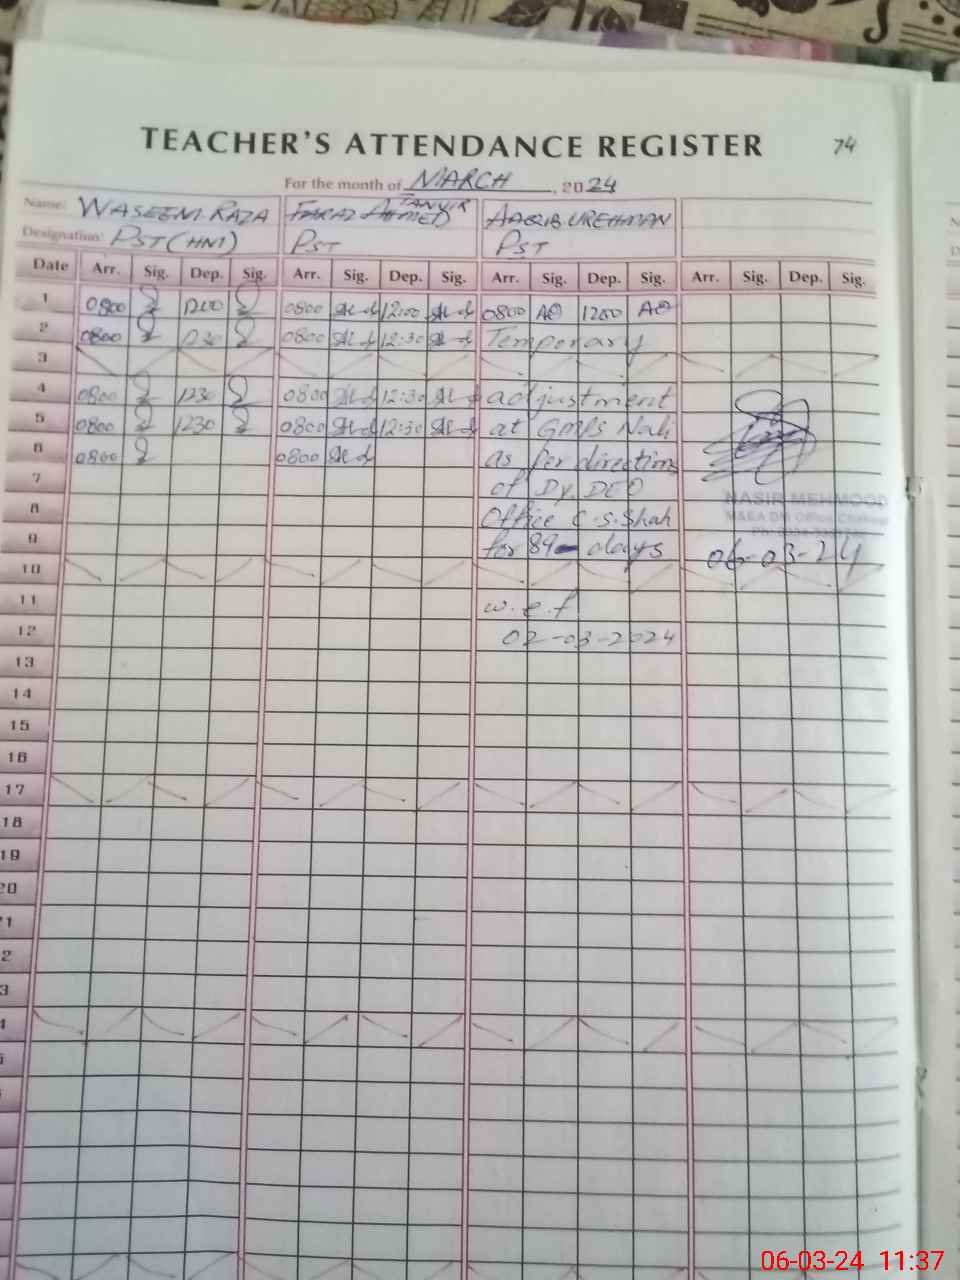 TEACHER'S ATTENDANCE REGISTER 74
For the month of MARCH, 2024
Name: WASEEM RAZA FARAZ AHMED TANVIR AAQIB UREHMAN
Designation: PST (HM) PST PST
Date Arr. Sig. Dep. Sig. Arr. Sig. Dep. Sig. Arr. Sig. Dep. Sig. Arr. Sig. Dep. Sig.
1 0800 1200 0800 12:00 0800 1200
2 0800 0800 12:30 Temporary
3
4 0800 1230 0800 12:30 adjustment
5 0800 1230 0800 12:30 at GMPS Nali
6 0800 0800 as per direction
7 of Dy. DEO
NASIR MEHMOOD
8 Office C.S.Shah
M&EA
9 for 89 days 06-03-24
10
11 w.e.f
12 02-03-2024
13
14
15
16
17
18
19
20
06-03-24 11:37